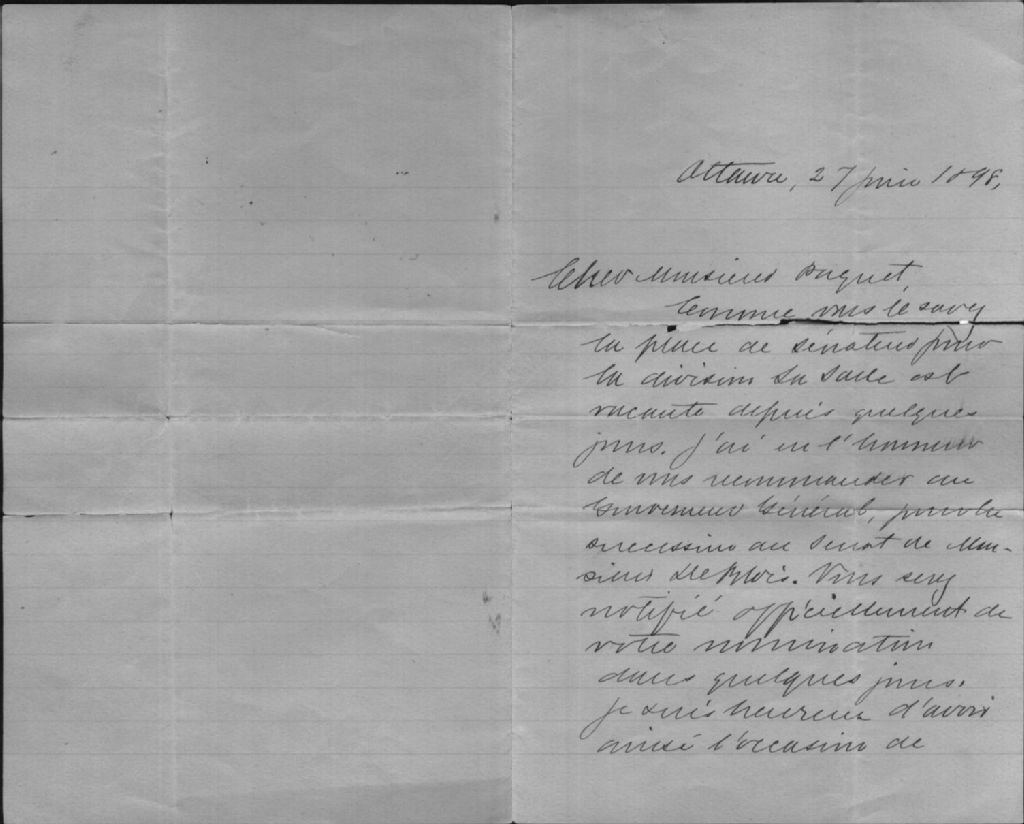 Ottawa, 27 juin 1898,
Cher Monsieur Paquet,
Comme vous le savez
la place de sénateur pour
la division La Salle est
vacante depuis quelques
jours. J'ai eu l'honneur
de vous recommander au
Gouverneur Général, pour la
succession au Sénat de Mon-
sieur DeBlois. Vous serez
notifié officiellement de
votre nomination
dans quelques jours.
Je suis heureux d'avoir
ainsi l'occasion de